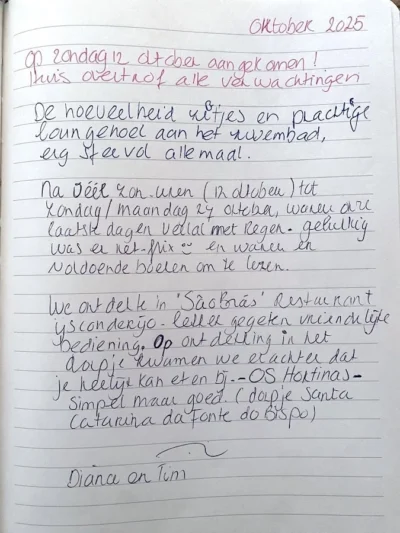 oktober 2025
Op zondag 12 oktober aangekomen!
Huis overtrof alle verwachtingen
De hoeveelheid zitjes en prachtige
loungehoek aan het zwembad,
erg sfeervol allemaal.
Na véél zon uren (12 oktober) tot
zondag/maandag 27 oktober, waren onze
laatste dagen vellal met regen. gelukkig
was er net-flix en waren er
voldoende boeken om te lezen.
We ontdekte in 'São Brás' Restaurant
ysconderijo. lekker gegeten vriendelijke
bediening. Op ontdekking in het
dorpje kwamen we erachter dat
je heerlijk kan eten bij.- OS Hortinas-
Simpel maar goed. (dorpje Santa
Catarina da Fonte do Bispo)
Diana en Tim